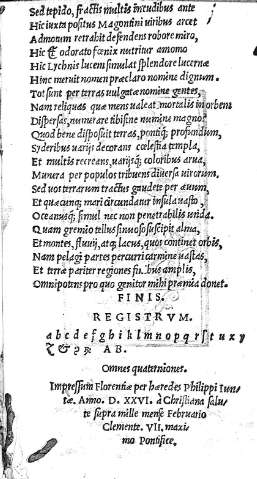 Sed tepido, fractis multis incudibus ante
Hic iuxta positus Magontini viribus arcet
Admotum retrahit defendens robore miro,
Hic & odorato fœnix nutritur amomo
Hic Lychnis lucem simulat splendore lucernæ
Hinc meruit nomen præclaro nomine dignum.
Tot sunt per terras uulgatæ nomine gentes,
Nam reliquas quæ mens ualeat, mortalis in orbem
Dispersas, numerare tibi sine numine magno?
Quod bene disposuit terras, pontúq; profundum,
Syderibus uarijs decorans cœlestia templa,
Et multis recreans, uarijsq; coloribus arua,
Munera per populos tribuens diuersa uirorum.
Sed uos terrarum tractus gaudete per æuum,
Et quæcunq; mari circundatur insula uasto,
Oceanusq; simul nec non penetrabilis unda.
Quam gremio tellus sinuoso suscipit alma,
Et montes, fluuij, atq; lacus, quos continet orbis,
Nam pelagi partes percurri carmine uastas,
Et terræ pariter regiones finibus amplis,
Omnipotens pro quo genitor mihi præmia donet.
FINIS.
REGISTRVM.
a b c d e f g h i k l m n o p q r s t u x y
z & ꝯ ꝝ AB.
Omnes quaterniones.
Impressum Florentiæ per hæredes Philippi Iun-
tæ. Anno. D. XXVI. à Christiana salu-
te supra mille mense Februario
Clemente. VII. maxi-
mo Pontifice.